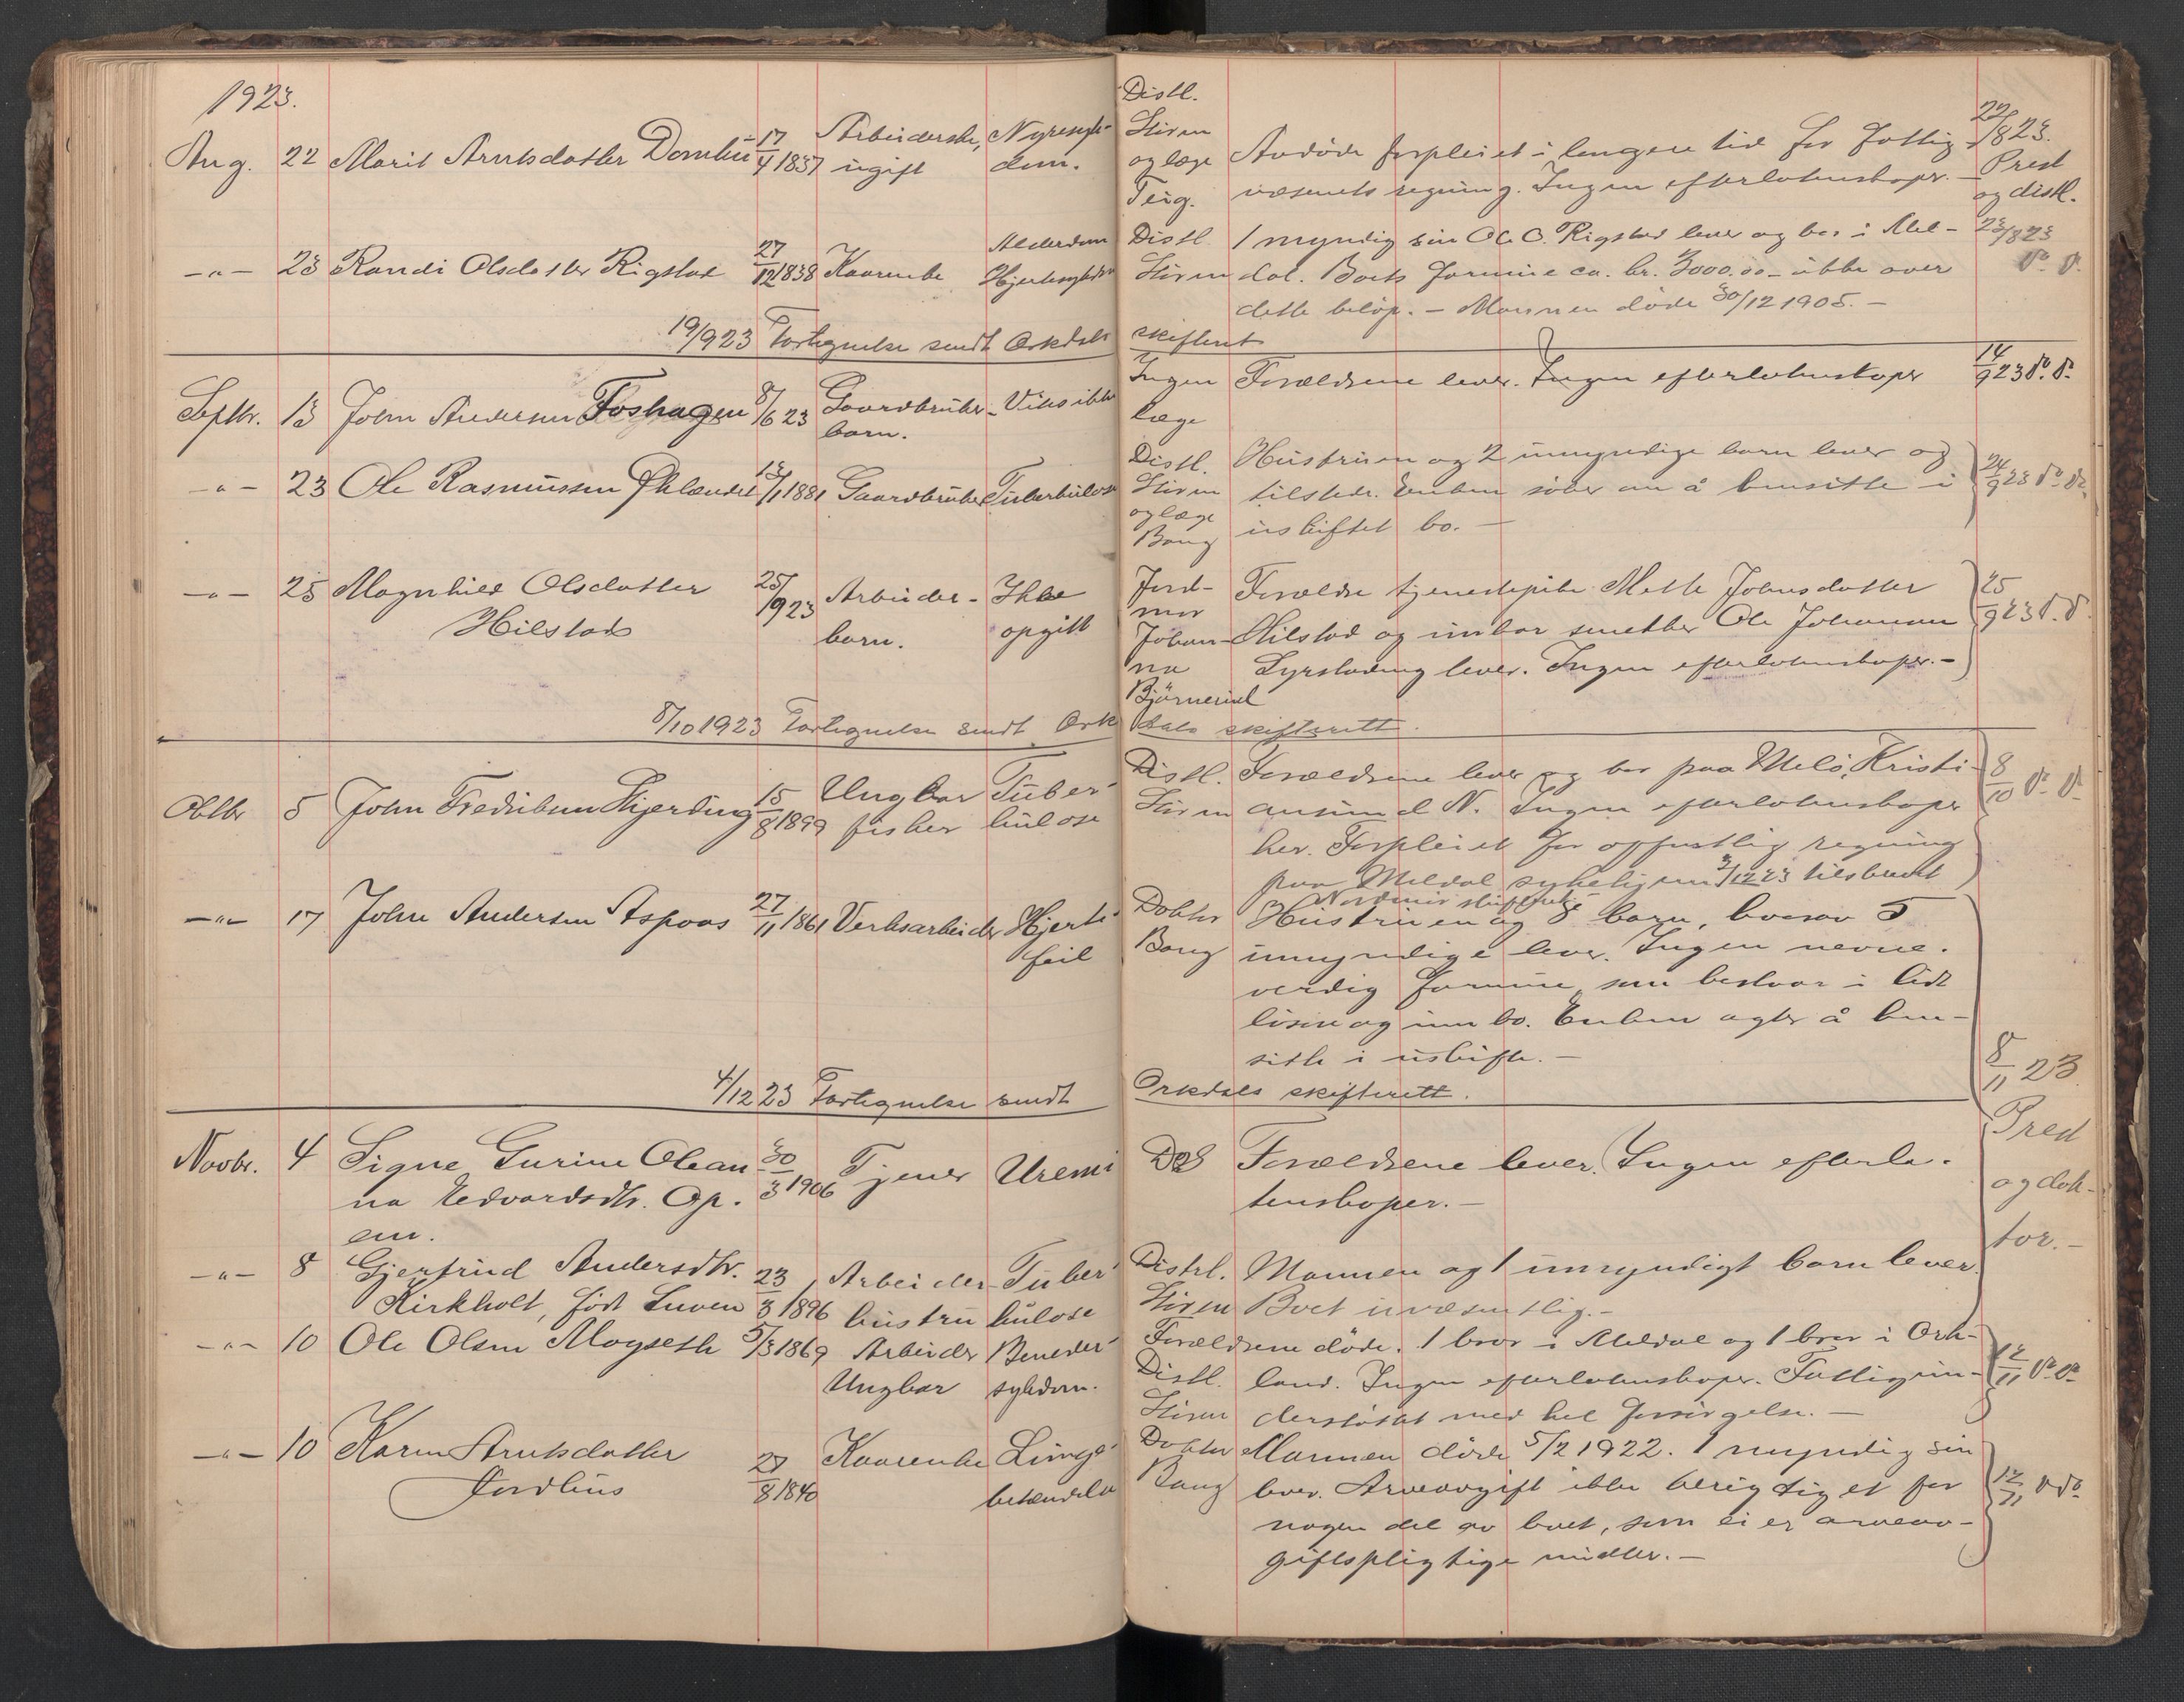 1923.
Aug. 22 Marit Arntsdatter Domlie 17/4 1837 Arbeiderske, ugift Nyresyk-dom.
Distl. Stören og læge Teig.
Avdöde forpleiet i lengere tid for fattig-
væsenets regning. Ingen efterlatenskaper. —
22/8 23. Prest og distl.
-„- 23 Randi Olsdatter Rigstad 27/12 1838 Kaarenke Alderdom Hjertesykdom
Distl. Stören
1 myndig sön Ole O. Rigstad lever og bor i Mel-
dal. Boets formue ca. kr. 3000.00 - ikke over
dette belöp. - Mannen döde 30/12 1905. -
23/8 23 do. do.
19/9 23 Fortegnelse sendt Orkdals skifteret
Septbr. 13 John Andersen Foshagen 8/6 23 Gaardbruker-barn. Vites ikke
Ingen læge
Forældrene lever. Ingen efterlatenskaper
14/9 23 do. do.
-„- 23 Ole Rasmussen Öklandet 13/1 1881 Gaardbruker Tuberkulose
Distl. Stören og læge Bang
Hustruen og 2 umyndige barn lever og
tilstede. Enken söker om å hensitte i
uskiftet bo. —
24/9 23 do. do.
-„- 25 Magnhild Olsdatter
Hilstad 25/9 23 Arbeider-barn. Ikke opgitt
Jord-mor Johanna Björnerud
Forældre tjenestepike Mette Johnsdatter
Hilstad og ungkar smelter Ole Johansen
Syrstadeng lever. Ingen efterlatenskaper. -
25/9 23 do. do.
8/10 1923 Fortegnelse sendt Orkdals skifterett.
Oktbr 5 John Fredriksen Skjerding 15/8 1899 Ungkar fisker Tuberkulose
Distl. Stören
Forældrene lever og bor paa Melö, Kristi-
ansund N. Ingen efterlatenskaper
her. Forpleiet for offentlig regning
paa Meldal sykehjem 3/12 23 tilsendt
Nordmör skifterett
8/10 do. do.
-„- 17 John Andersen Aspaas 27/11 1861 Verksarbeider Hjertefeil
Doktor Bang
Hustruen og 8 barn, hvorav 5
umyndige lever. Ingen nevne-
verdig formue, som bestaar i lidt
lösöre og innbo. Enken agter å hen-
sitte i uskifte. —
8/11 23. Prest og doktor. -
4/12 23 Fortegnelse sendt Orkdals skifterett.
Novbr. 4 Signe Gurine Olean
na Edvardsdtr. Op.
em. 30/3 1906 Tjener Uremi
Do
Forældrene lever. Ingen efterla-
tenskaper. —
-„- 8 Gjertrud Andersdtr.
Kirkholt, född Luven 23/3 1896 Arbeider hustru Tuberkulose
Distrl. Stören
Mannen og 1 umyndigt barn lever.
Boet uvæsentlig. -
-„- 10 Ole Olsen Mogseth 5/3 1869 Arbeider Ungkar Benedersykdom.
Distl. Stören
Forældrene döde. 1 bror i Meldal og 1 bror i Ork-
land. Ingen efterlatenskaper. Fattigun-
derstöttet med hel forsörgelse. —
12/11 do. do.
-„- 10 Karen Arntsdatter
Jordhus 27/8 1840 Kaarenke Lunge-betændelse
Doktor Bang
Mannen döde 5/2 1922. 1 myndig sön
lever. Arveavgift ikke berigtiget for
nogen del av boet, som ei er arveav-
giftspligtige midler. —
12/11 do do.